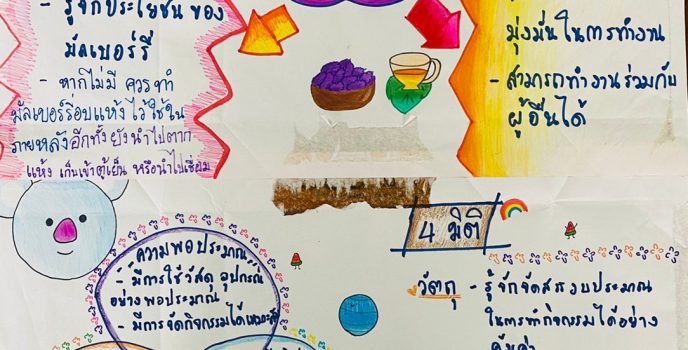 - รู้จักประโยชน์ของ
มัลเบอร์รี่
- หากไม่มี ควรทำ
มัลเบอร์รี่อบแห้งไว้ใช้ใน
ภายหลังอีกทั้งยังนำไปตาก
แห้ง เก็บเข้าตู้เย็น หรือนำไปเชื่อม
มุ่งมั่นในการทำงาน
- สามารถทำงานร่วมกับ
ผู้อื่นได้
ความพอประมาณ
- มีการใช้วัสดุ อุปกรณ์
อย่างพอประมาณ
- มีการจัดกิจกรรมได้
4 มิติ
วัตถุ - รู้จักจัดสรรงบประมาณ
ในการทำกิจกรรมได้อย่าง
คุ้มค่า